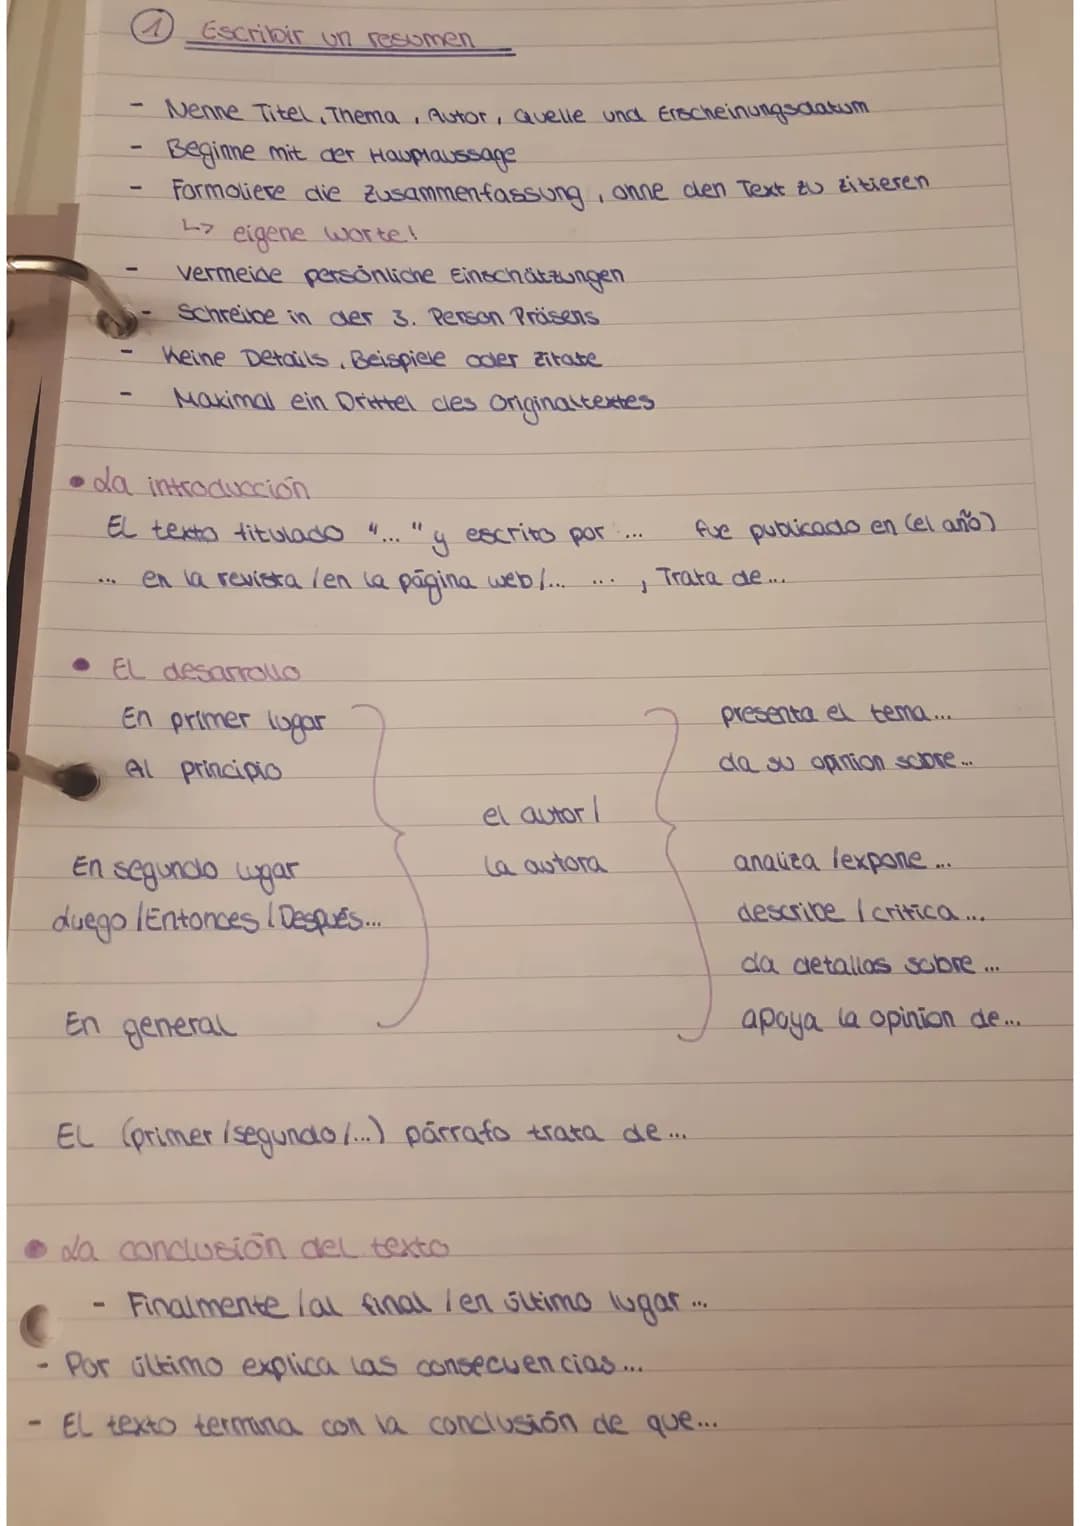 ① Escribir un resumen
- Nenne Titel, Thema, Autor, Quelle und Erscheinungsdatum
- Beginne mit der Hauptaussage
- Formuliere die Zusammenfassung, ohne den Text zu zitieren
↳ eigene Worte!
- Vermeide persönliche Einschätzungen
- Schreibe in der 3. Person Präsens
- Keine Details, Beispiele oder Zitate
- Maximal ein Drittel des Originaltextes
• La introducción
El texto titulado "..." y escrito por ... fue publicado en (el año)
... en la revista / en la página web /... ..., Trata de...
• El desarrollo
En primer lugar presenta el tema...
Al principio da su opinion sobre...
el autor /
En segundo lugar la autora analiza / expone ...
Luego / Entonces / Después... describe / critica ...
da detallas sobre ...
En general apoya la opinion de...
El (primer / segundo /...) párrafo trata de ...
• La conclusión del texto
- Finalmente / al final / en último lugar ...
- Por último explica las consecuencias ...
- El texto termina con la conclusión de que...